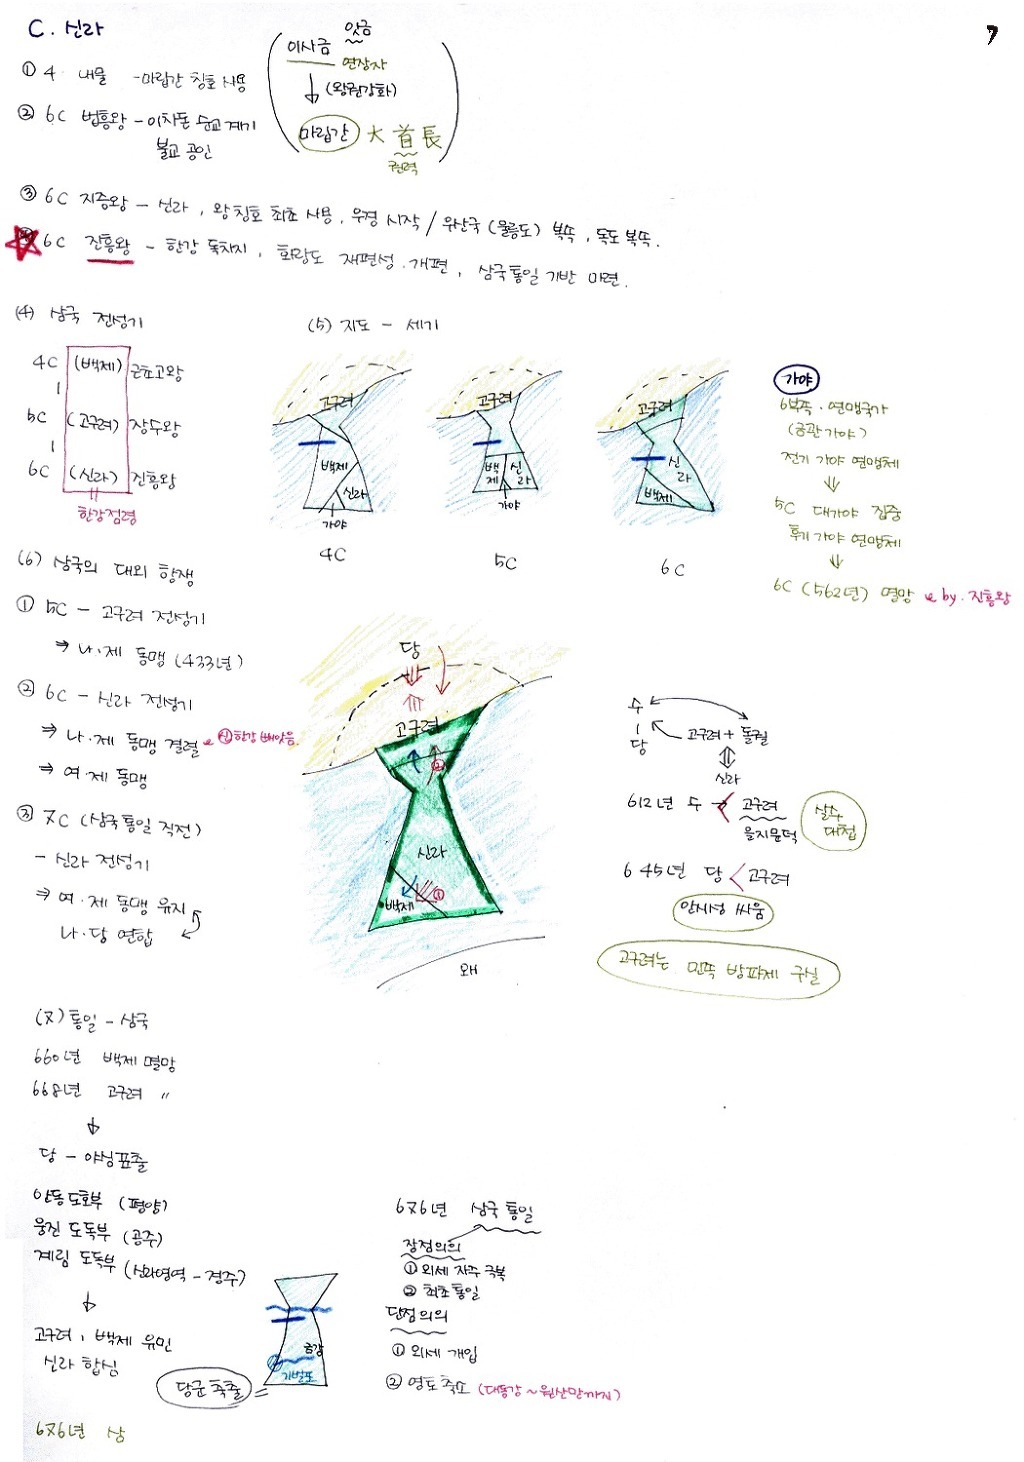 C. 신라
7
① 4 내물 - 마립간 칭호 사용
② 6C 법흥왕 - 이차돈 순교 계기
불교 공인
잇금
이사금
연장자
(왕권강화)
마립간 大首長
권력
③ 6C 지증왕 - 신라, 왕 칭호 최초 사용, 우경 시작 / 우산국(울릉도) 복속, 독도 복속.
6C 진흥왕 - 한강 독차지, 화랑도 재편성·개편, 삼국통일 기반 마련.
(4) 삼국 전성기
4C (백제) 근초고왕
5C (고구려) 장수왕
6C (신라) 진흥왕
한강점령
(5) 지도 - 세기
고구려
백제
신라
가야
4C
고구려
백제
신라
가야
5C
고구려
신라
백제
6C
가야
6부족·연맹국가
(금관가야)
전기 가야 연맹체
⇓
5C 대가야 집중
후기 가야 연맹체
⇓
6C (562년) 멸망 by. 진흥왕
(6) 삼국의 대외 항쟁
① 5C - 고구려 전성기
⇒ 나·제 동맹 (433년)
② 6C - 신라 전성기
⇒ 나·제 동맹 결렬 신 한강 빼앗음.
⇒ 여·제 동맹
③ 7C (삼국통일 직전)
- 신라 전성기
⇒ 여·제 동맹 유지
나·당 연합
당
고구려
②
신라
①
백제
왜
수
당
고구려 + 돌궐
신라
612년 수 → < 고구려
을지문덕
살수대첩
645년 당 < 고구려
안시성 싸움
고구려는 민족 방파제 구실
(7) 통일 - 삼국
660년 백제 멸망
668년 고구려 〃
↓
당 - 야심표출
안동 도호부 (평양)
웅진 도독부 (공주)
계림 도독부 (신라영역 - 경주)
↓
고구려, 백제 유민
신라 합심
당군 축출
금강
기벌포
676년 삼
676년 삼국 통일
장점의의
① 외세 자주 극복
② 최초 통일
단점의의
① 외세 개입
② 영토축소 (대동강~원산만까지)